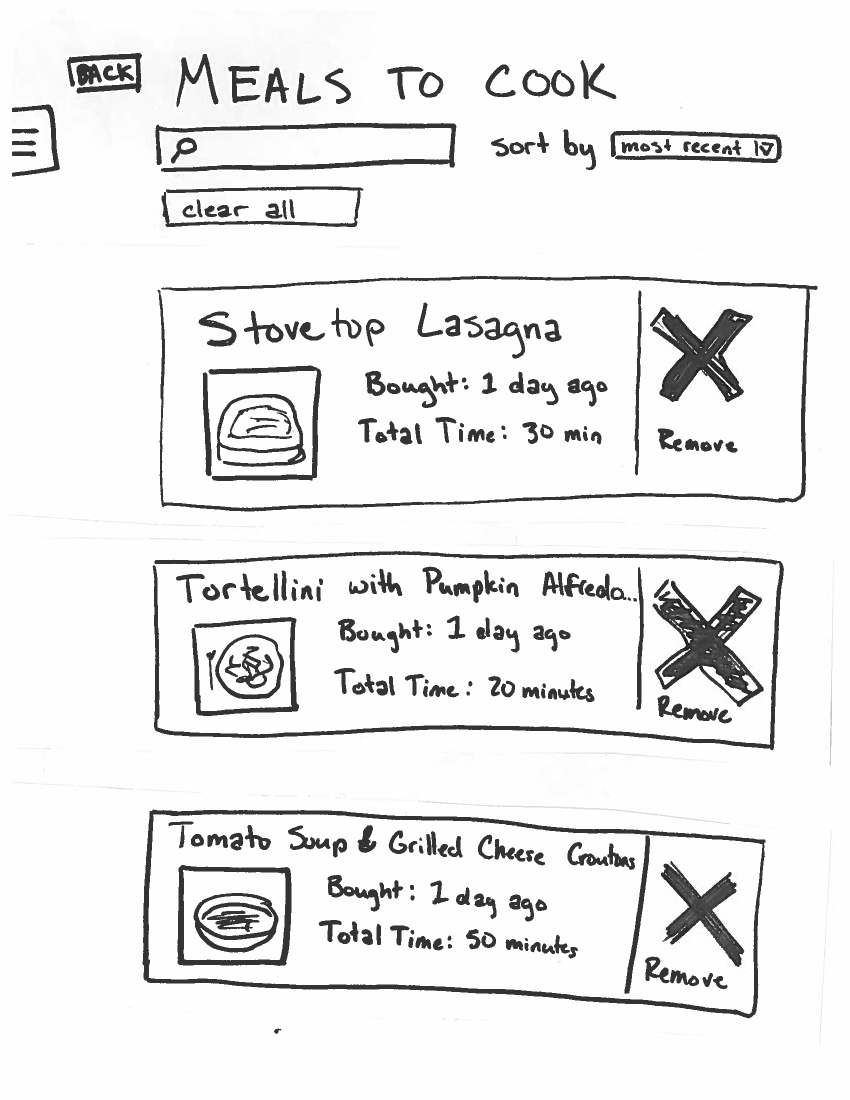 BACK
MEALS TO COOK
sort by most recent
clear all
Stovetop Lasagna
Bought: 1 day ago
Total Time: 30 min
Remove
Tortellini with Pumpkin Alfredo...
Bought: 1 day ago
Total Time: 20 minutes
Remove
Tomato Soup & Grilled Cheese Croutons
Bought: 1 day ago
Total Time: 50 minutes
Remove